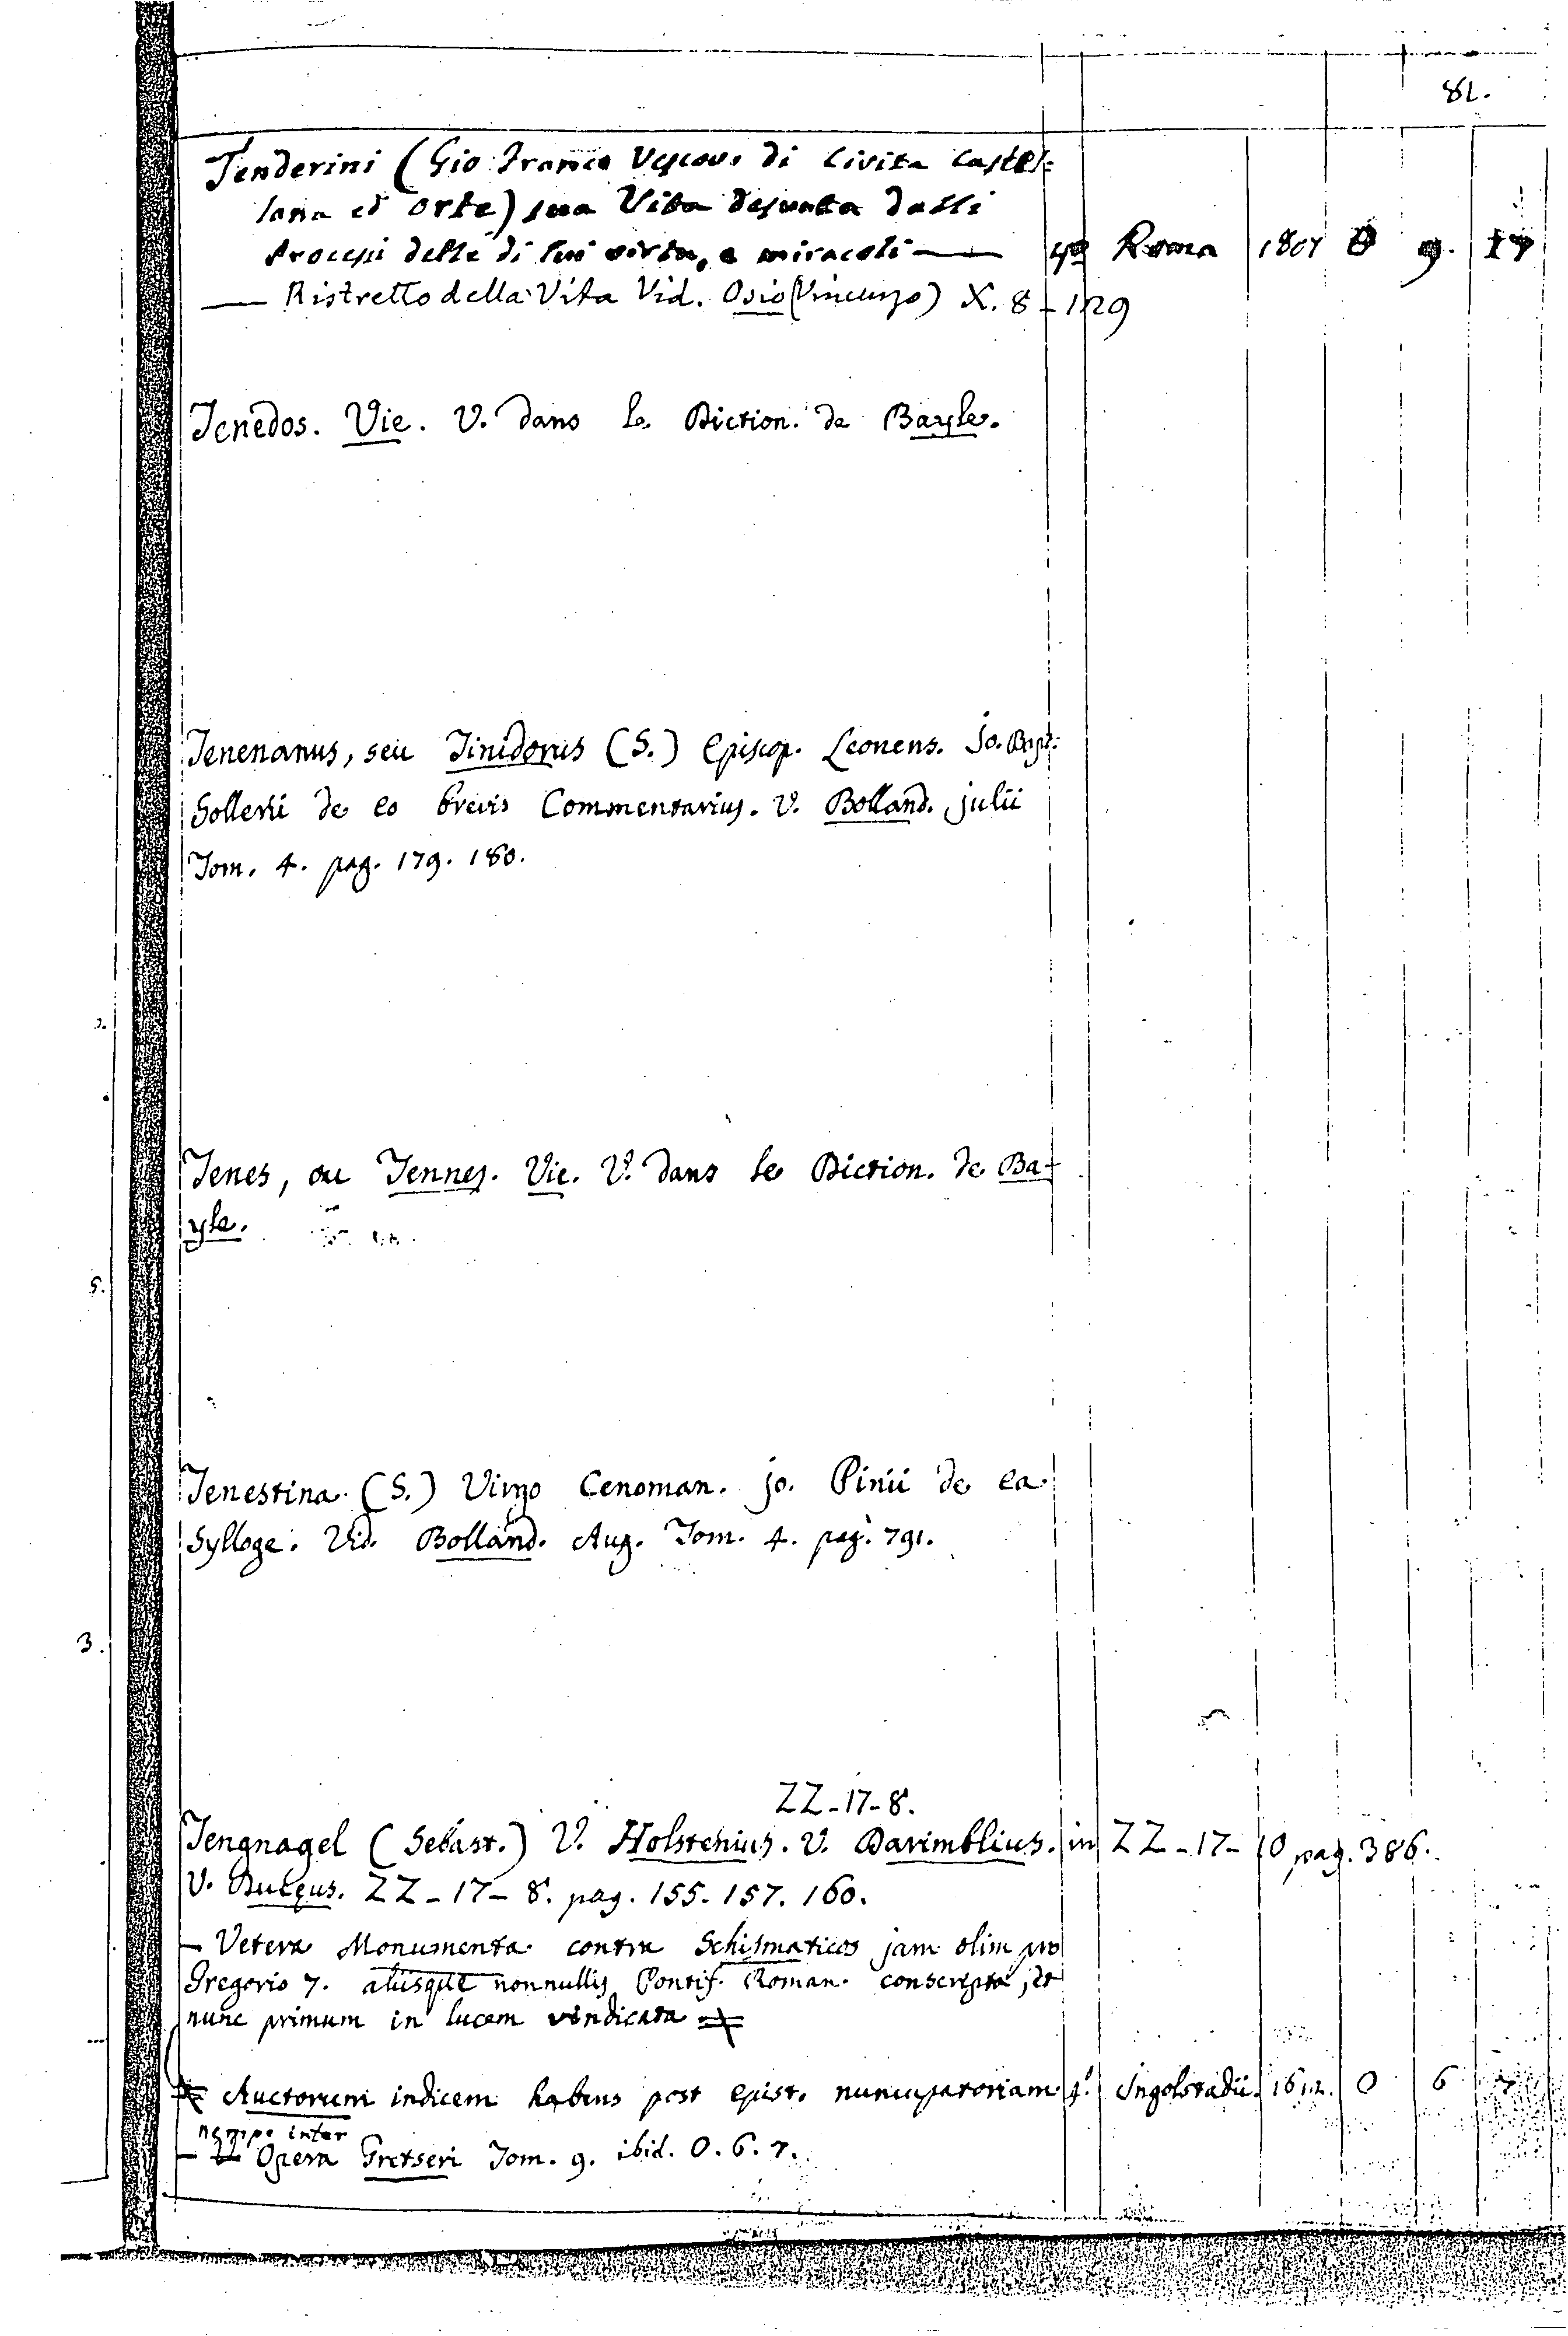 81.
Tenderini (Gio: Franco Vescovo di Civita Castel-
lana ed Orte) sua Vita desunta dalli
Processi delle di lui virtu, e miracoli — 4º Roma 1801 O 9. 17
— Ristretto della Vita Vid. Osio (Vincenzo) X. 8 - 129
Tenedos. Vie. V. dans le Diction. de Bayle.
Tenenanus, seu Tinidorus (S.) Episcop. Leonens. Jo. Bapt.
Sollerii de eo brevis Commentarius. V. Bolland. julii
Tom. 4. pag. 179. 180.
Tenes, ou Tennes. Vie. V. dans le Diction. de Ba-
yle.
Tenestina (S.) Virgo Cenoman. jo. Pinii de ea
Sylloge. Vid. Bolland. Aug. Tom. 4. pag. 791.
ZZ-17-8.
Tengnagel (Sebast.) V. Holstenius. V. Barimblius. in ZZ-17-10 pag. 386.
V. ZZ-17-8. pag. 155. 157. 160.
— Vetera Monumenta contra Schismaticos jam olim pro
Gregorio 7. aliisque nonnullis Pontif. Roman. conscripta, et
nunc primum in lucem vindicata
Auctorum indicem habens post epist. nuncupatoriam 4.º Ingolstadii. 1612. O 6 7
nempe inter
— Opera Gretseri Tom. 9. ibid. O. 6. 7.
5.
3.